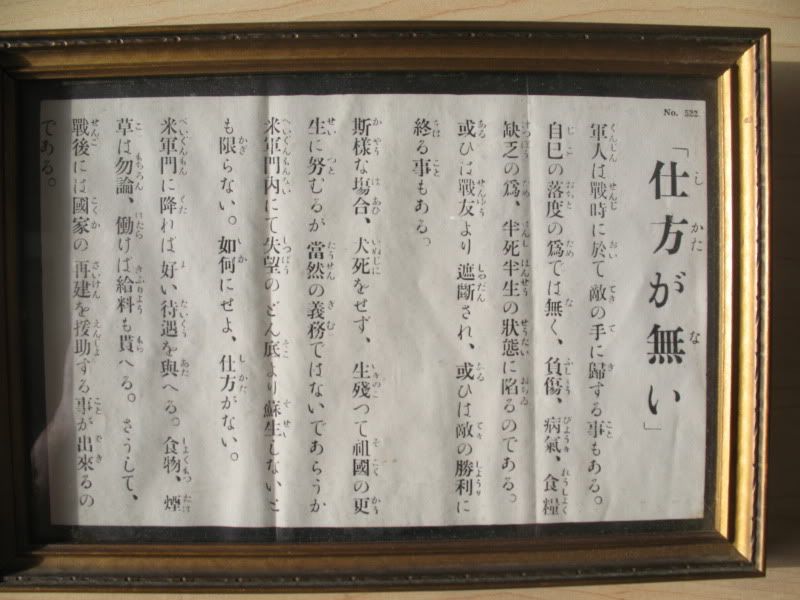 No. 522
「仕方が無い」
軍人は戰時に於て敵の手に歸する事もある。
自已の落度の爲では無く、負傷、病氣、食糧
缺乏の爲、半死半生の狀態に陷るのである。
或ひは戰友より遮斷され、或ひは敵の勝利に
終る事もある。
斯樣な場合、犬死をせず、生殘つて祖國の更
生に努むるが當然の義務ではないであらうか
米軍門內にて失望のどん底より蘇生しないと
も限らない。如何にせよ、仕方がない。
米軍門に降れば好い待遇を與へる。食物、煙
草は勿論、働けば給料も貰へる。さうして、
戰後には國家の再建を援助する事が出來るの
である。